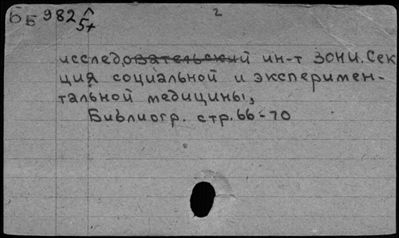 ББ 982^ 2
57
исследовательский ин-т ЗОНИ. Сек
ция социальной и эксперимен-
тальной медицины,
Библиогр. стр. 66-70